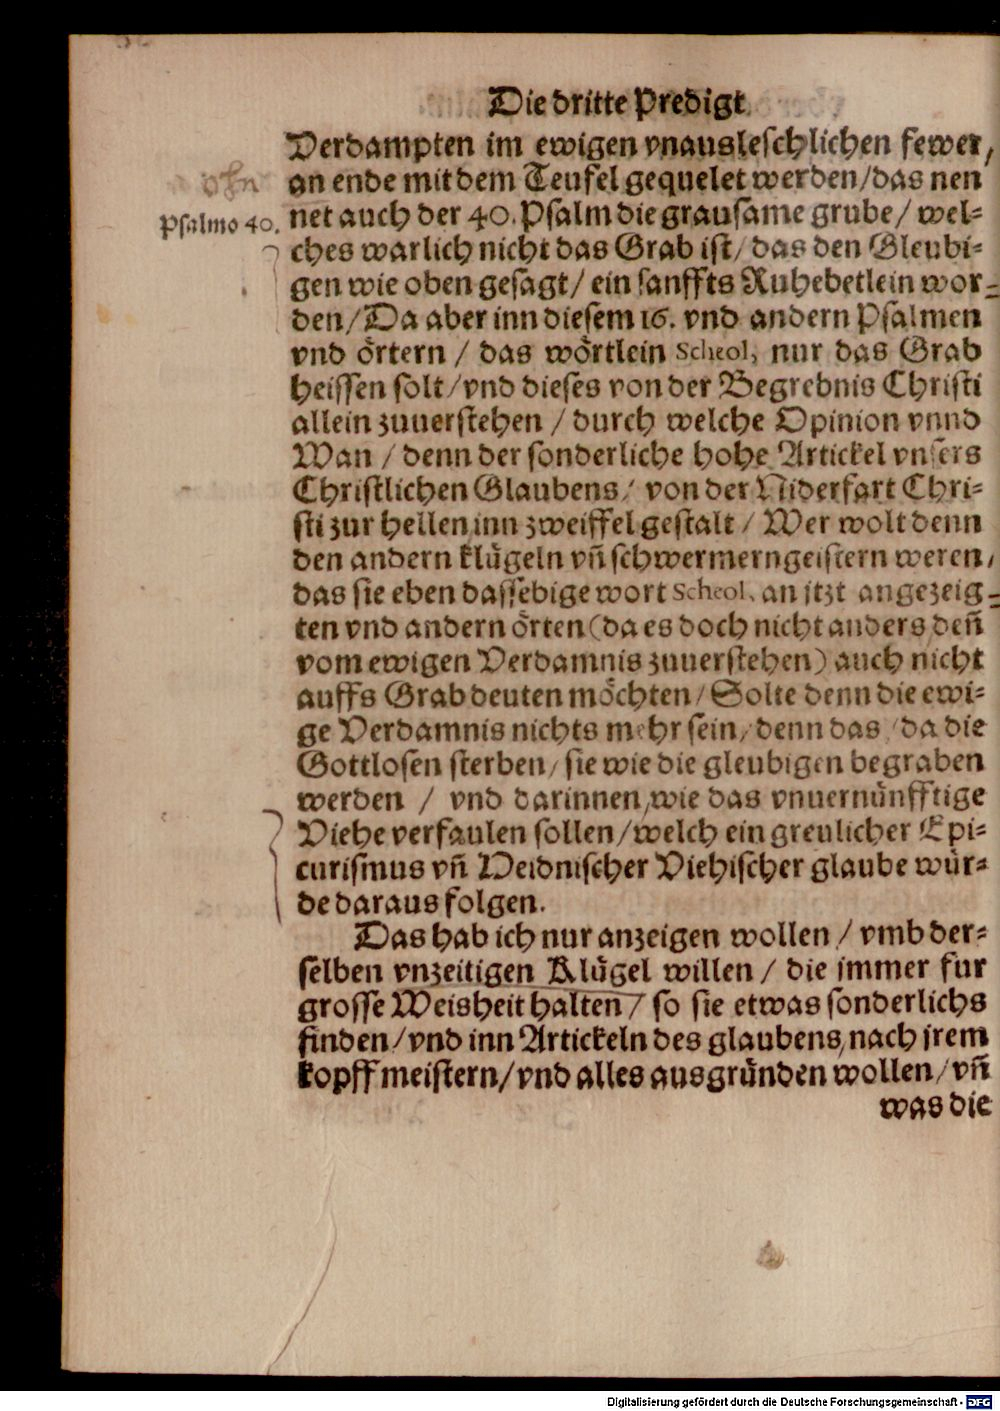 Die dritte Predigt
Verdampten im ewigen vnausleschlichen fewer,
ohn
an ende mit dem Teufel gequelet werden/das nen
Psalmo 40.
net auch der 40. Psalm die grausame grube/ wel-
ches warlich nicht das Grab ist/ das den Gleubi-
gen wie oben gesagt/ ein sanffts Ruhebetlein wor-
den/ Da aber inn diesem 16. vnd andern Psalmen
vnd örtern / das wörtlein Scheol, nur das Grab
heissen solt/ vnd dieses von der Begrebnis Christi
allein zuuerstehen / durch welche Opinion vnnd
Wan / denn der sonderliche hohe Artickel vnsers
Christlichen Glaubens/ von der Niderfart Chri-
sti zur hellen inn zweiffel gestalt / Wer wolt denn
den andern klügeln vñ schwermerngeistern weren/
das sie eben dassebige wort Scheol, an itzt angezeig-
ten vnd andern örten (da es doch nicht anders deñ
vom ewigen Verdamnis zuuerstehen) auch nicht
auffs Grab deuten möchten/ Solte denn die ewi-
ge Verdamnis nichts mehr sein/ denn das / da die
Gottlosen sterben/ sie wie die gleubigen begraben
werden / vnd darinnen, wie das vnuernünfftige
Viehe verfaulen sollen/ welch ein greulicher Epi-
curismus vñ Heidnischer Viehischer glaube wür-
de daraus folgen.
Das hab ich nur anzeigen wollen / vmb der-
selben vnzeitigen Klügel willen / die jmmer fur
grosse Weisheit halten / so sie etwas sonderlichs
finden/ vnd inn Artickeln des glaubens, nach jrem
kopff meistern/ vnd alles ausgründen wollen/ vñ
was die
Digitalisierung gefördert durch die Deutsche Forschungsgemeinschaft - DFG